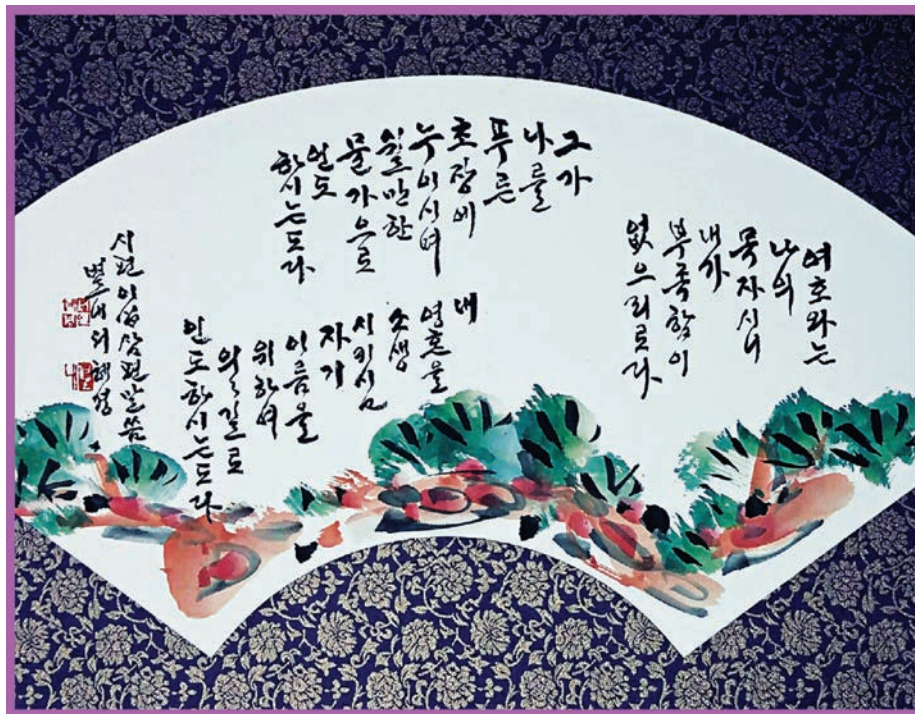 여호와는
나의
목자시니
내가
부족함이
없으리로다
그가
나를
푸른
초장에
누이시며
쉴만한
물가으로
인도
하시는도다
내
영혼을
소생
시키시고
자기
이름을
위하여
의의 길로
인도하시는도다
시편 이십삼편 말씀